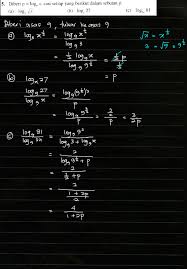 5. Diberi p = log₉ x, cari setiap yang berikut dalam sebutan p.
(a) log₃ √x (b) logₓ 27 (c) log₃ₓ 81
Diberi asas 9, tukar ke asas 9
a) log₃ x^½ = log₉ x^½ / log₉ 3
√x = x^½
3 = √9 = 9^½
= ½ log₉ x / log₉ 9^½ = ½p / ½
= p
b) logₓ 27
log₉ 27 / log₉ x = log₉ (9^½)³ / p
= log₉ 9^(3/2) / p = 3/2 / p = 3/2p
c) log₉ 81 / log₉ 3x = log₉ 9² / log₉ 3 + log₉ x
= 2 / log₉ 9^½ + p
= 2 / ½ + p
= 2 / (1 + 2p / 2)
= 4 / 1 + 2p